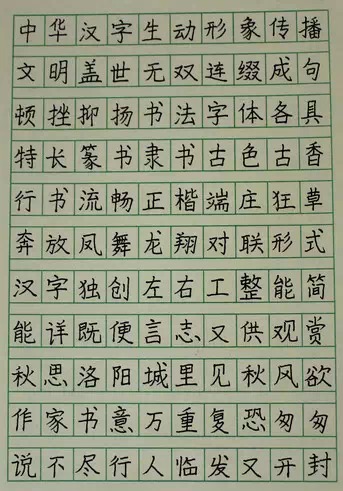 中华汉字生动形象传播
文明盖世无双连缀成句
顿挫抑扬书法字体各具
特长篆书隶书古色古香
行书流畅正楷端庄狂草
奔放凤舞龙翔对联形式
汉字独创左右工整能简
能详既便言志又供观赏
秋思洛阳城里见秋风欲
作家书意万重复恐匆匆
说不尽行人临发又开封